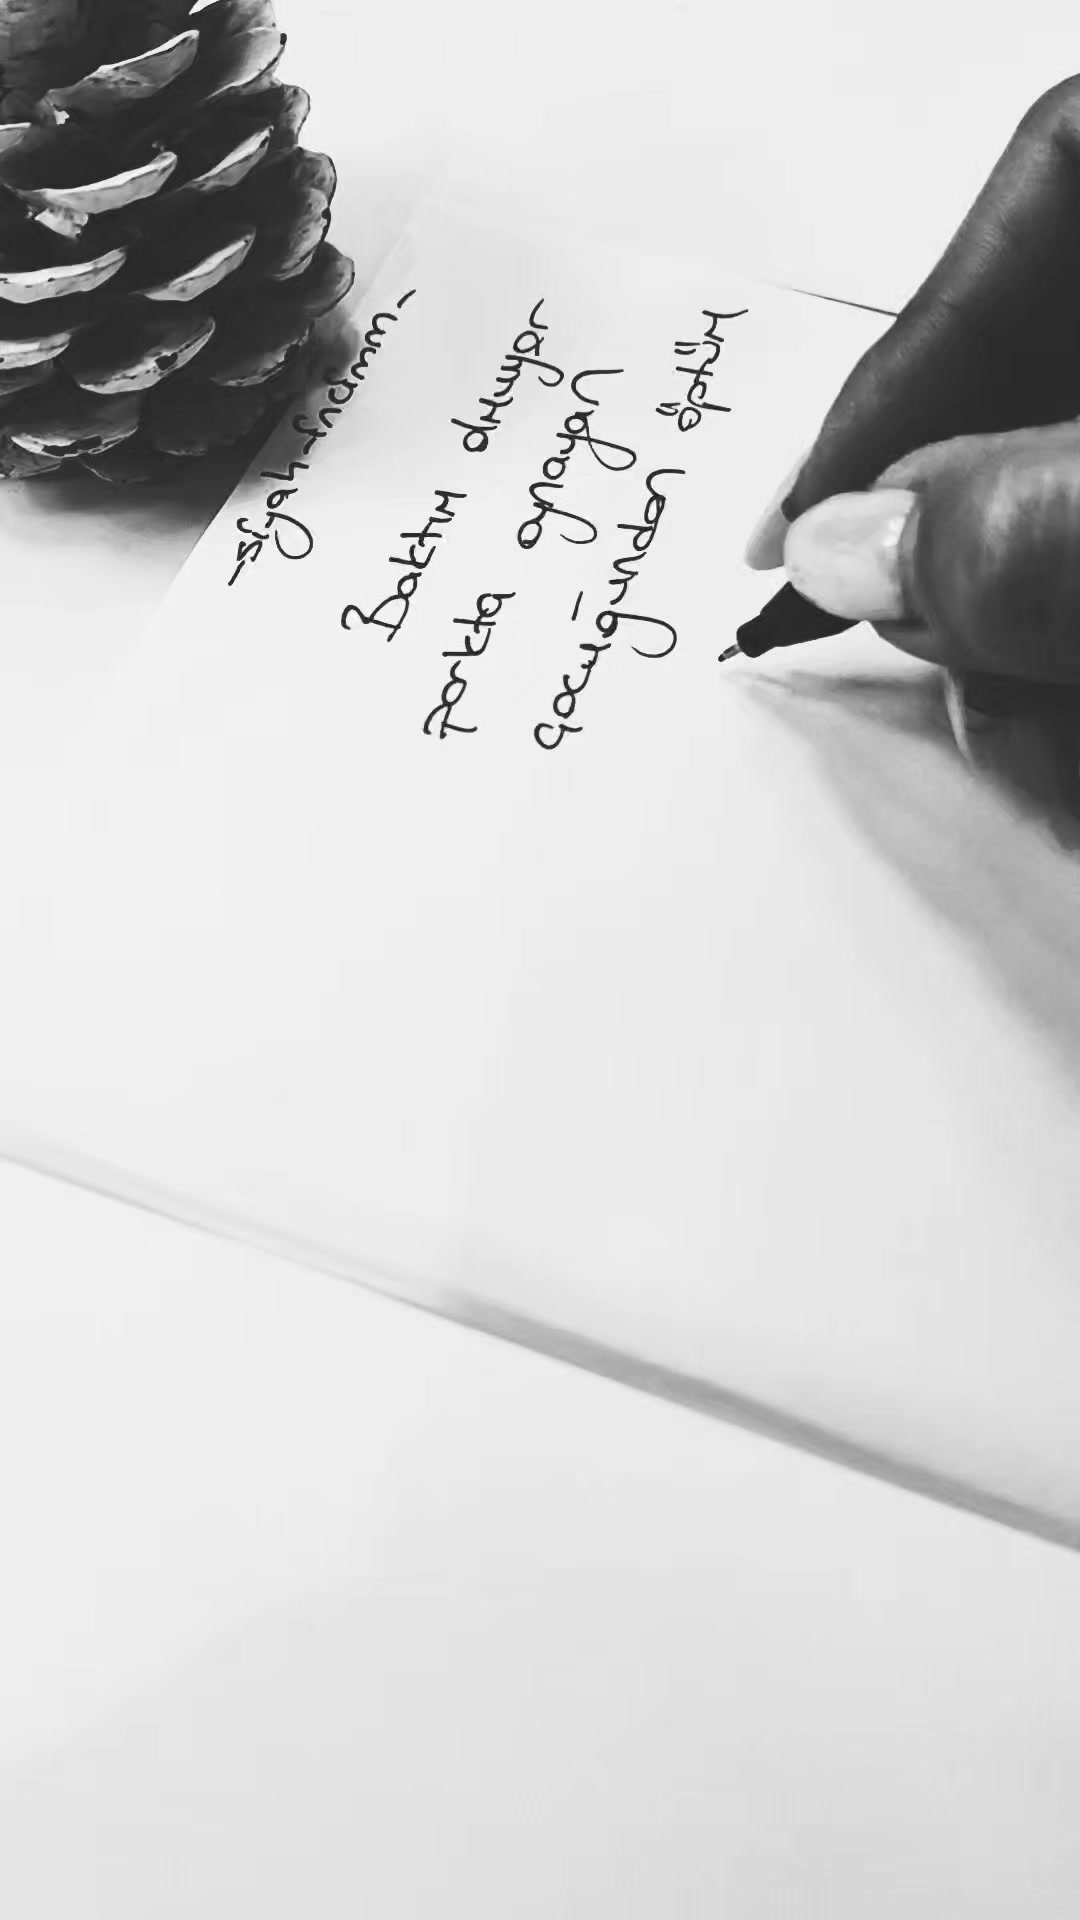 -syah-fnamm-
Baktım duuyar
parkta oynayan
çocuğundan öptüm